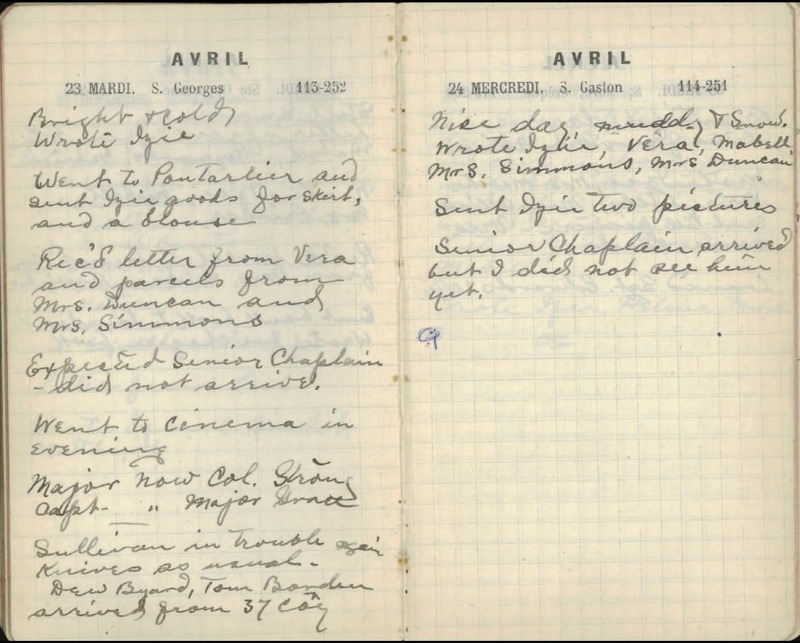 AVRIL
23 MARDI. S. Georges 113-252
Bright & cold
Wrote Izie
Went to Pontarlier and
sent Izie goods for skirt,
and a blouse
Rec'd letter from Vera
and parcels from
Mrs. Duncan and
Mrs. Simmons
Expected Senior Chaplain
- did not arrive.
Went to cinema in
evening
Major now Col. Strong
Capt- " Major Grace
Sullivan in trouble again
Knives as usual.
Dew Byard, Tom Borden
arrived from 37 Coy
AVRIL
24 MERCREDI. S. Gaston 114-251
Nice day, muddy & snow.
Wrote Izie, Vera, Mabell,
Mrs. Simmons, Mrs Duncan
Sent Izie two pictures
Senior Chaplain arrived
but I did not see him
yet.